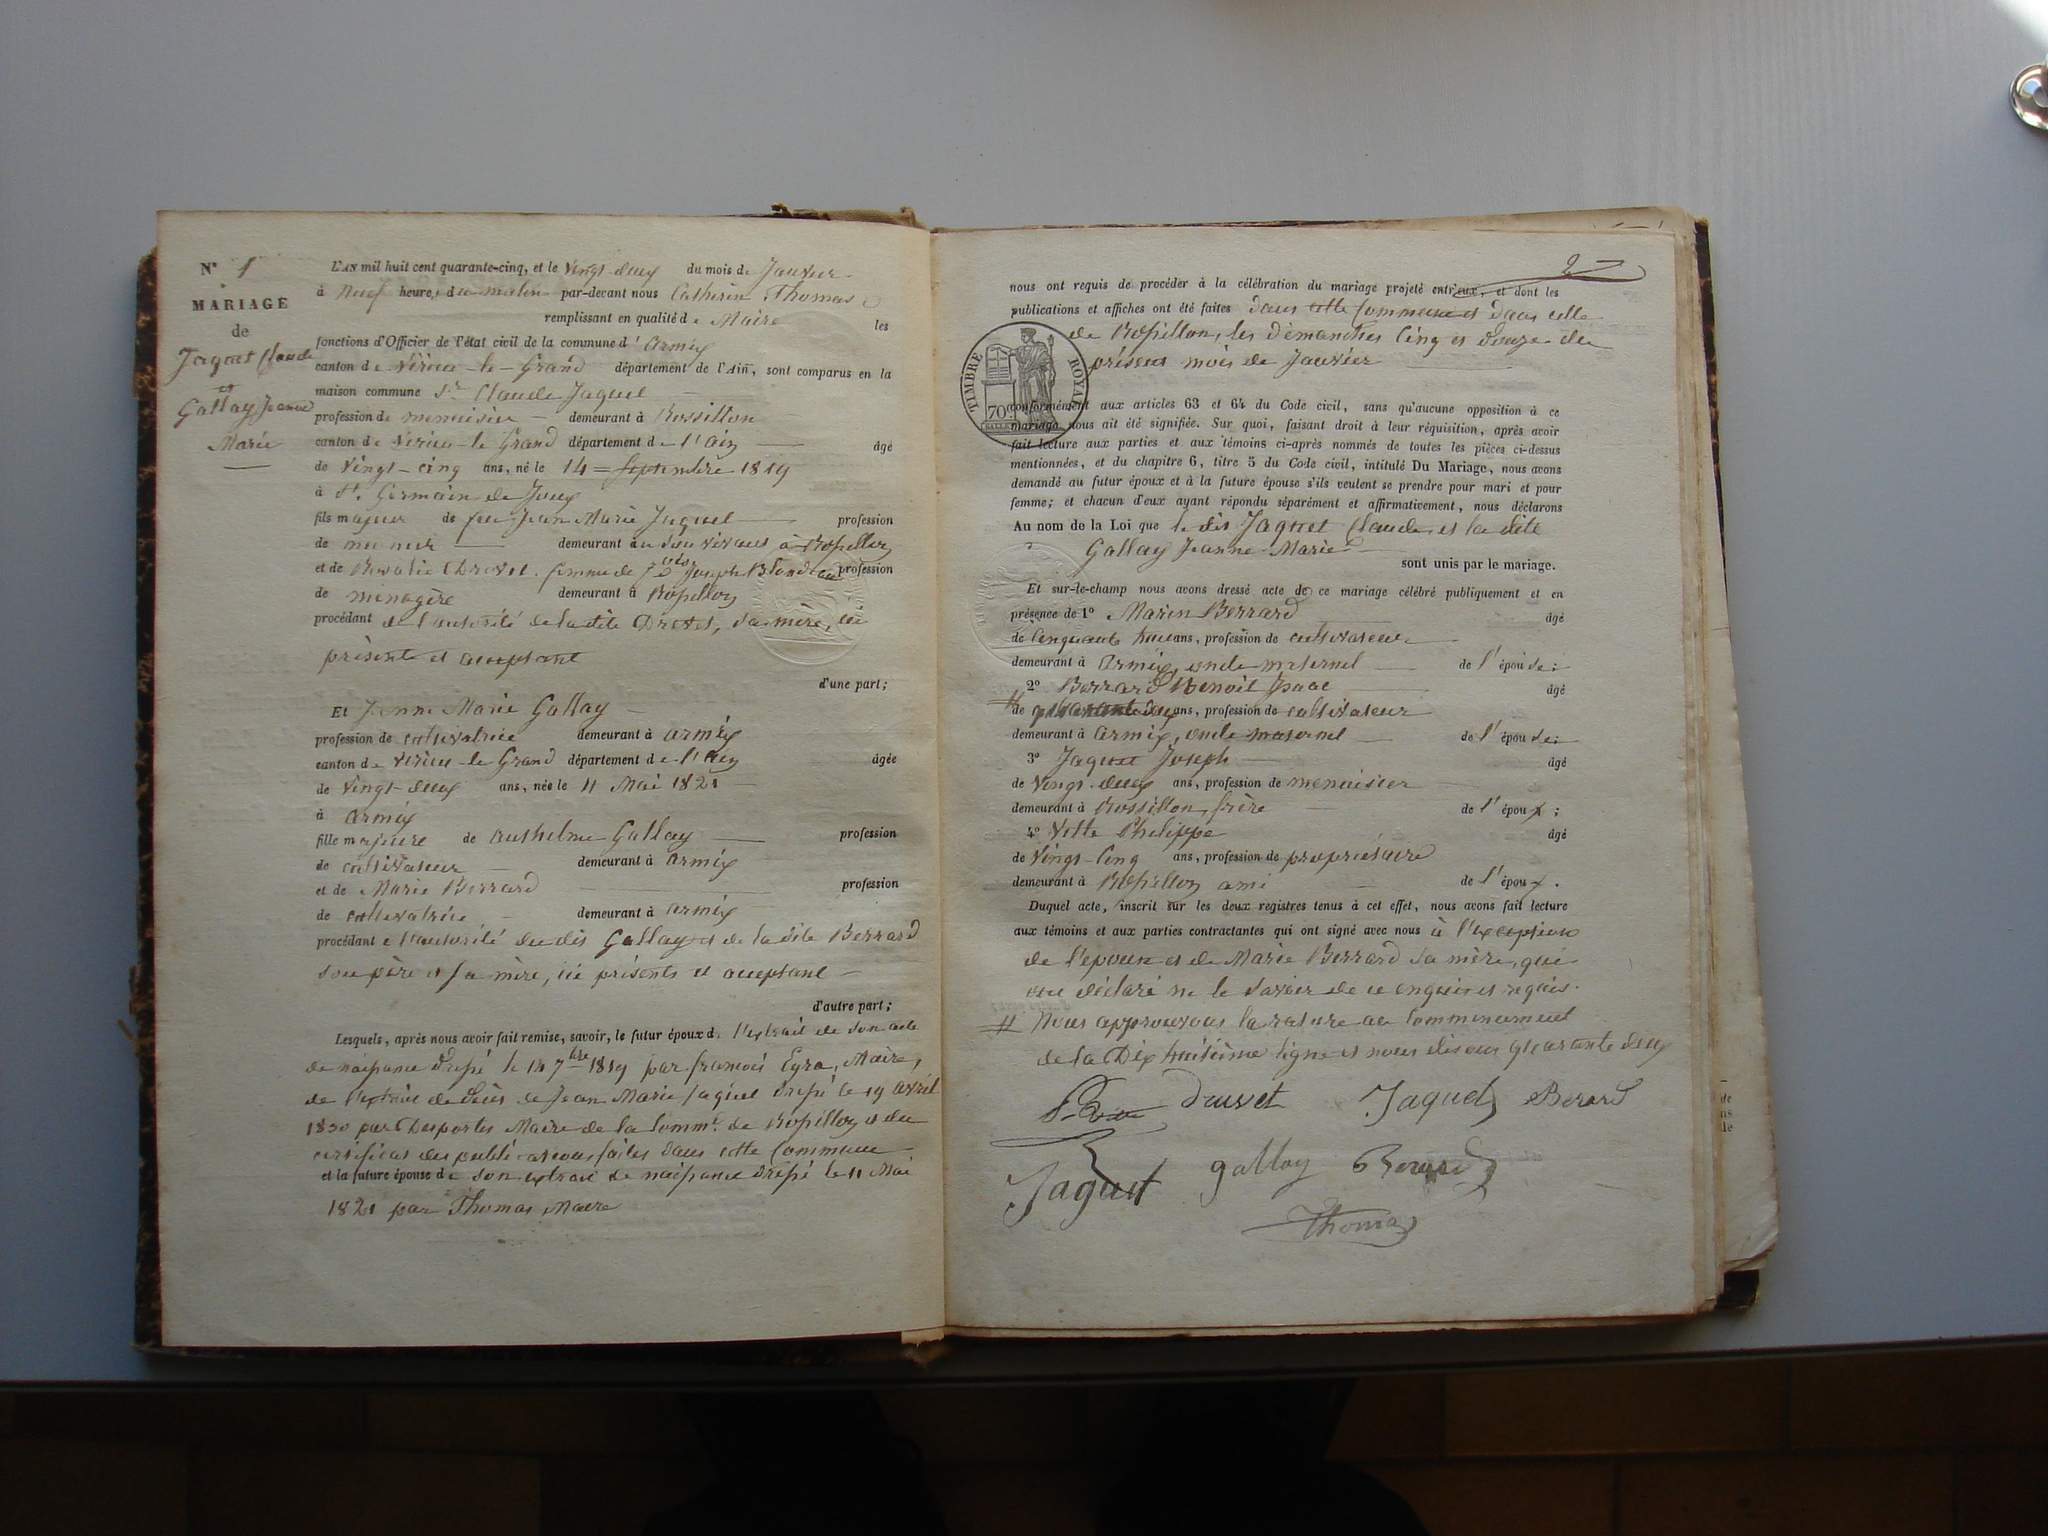 N° 1
MARIAGE
de
Jaquet Claude
et
Gallay Jeanne
Marie
L'AN mil huit cent quarante-cinq, et le vingt-deux du mois de Janvier
à Neuf heures du matin par-devant nous Catherin Thomas
remplissant en qualité de Maire les
fonctions d'Officier de l'état civil de la commune d'Armix
canton de Virieu-le-Grand département de l'Ain, sont comparus en la
maison commune Sr Claude Jaquet
profession de menuisier demeurant à Rossillon
canton de Virieu-le Grand département de l'Ain âgé
de vingt-cinq ans, né le 14 Septembre 1819
à St. Germain de Joux
fils majeur de feu Jean Marie Jaquet profession
de demeurant de son vivant à Rossillon
et de Rosalie Drevet femme de Joseph profession
de menagère demeurant à Rossillon
procédant de l'autorité de la dite Drevet, sa mère, ici
présente et acceptant
d'une part;
Et Jeanne Marie Gallay
profession de cultivatrice demeurant à armix
canton de virieu-le Grand département de l'Ain âgée
de vingt-deux ans, née le 11 Mai 1821
à armix
fille majeure de anthelme Gallay profession
de cultivateur demeurant à armix
et de Marie Berrard profession
de cultivatrice demeurant à armix
procédant de l'autorité du dit Gallay et de la dite Berrard
son père et sa mère, ici présents et acceptant
d'autre part;
Lesquels, après nous avoir fait remise, savoir, le futur époux d. l'extrait de son acte
de naissance dressé le 14 7bre 1819 par françois Egra, Maire,
de l'extrait de décès de Jean Marie jaquet dressé le 19 avril
1830 par Desportes Maire de la Comme de Rossillon et du
certificat des publications faites dans cette Commune
et la future épouse de son extrait de naissance dressé le 11 Mai
1821 par Thomas, Maire
2
nous ont requis de procéder à la célébration du mariage projeté entr'eux, et dont les
publications et affiches ont été faites dans cette Commune et dans celle
de Rossillon, les dimanches Cinq et douze du
présent mois de Janvier
TIMBRE ROYAL
70c
conformément aux articles 63 et 64 du Code civil, sans qu'aucune opposition à ce
mariage nous ait été signifiée. Sur quoi, faisant droit à leur réquisition, après avoir
fait lecture aux parties et aux témoins ci-après nommés de toutes les pièces ci-dessus
mentionnées, et du chapitre 6, titre 5 du Code civil, intitulé Du Mariage, nous avons
demandé au futur époux et à la future épouse s'ils veulent se prendre pour mari et pour
femme; et chacun d'eux ayant répondu séparément et affirmativement, nous déclarons
Au nom de la Loi que le dit Jaquet Claude et la dite
Gallay Jeanne-Marie
sont unis par le mariage.
Et sur-le-champ nous avons dressé acte de ce mariage célébré publiquement et en
présence de 1° Marin Berrard âgé
de Cinquante ans, profession de cultivateur
demeurant à armix, oncle maternel de l'épouse;
2° Berrard Benoit Isaac âgé
# de ans, profession de cultivateur
demeurant à armix, oncle maternel de l'épouse;
3° Jaquet Joseph âgé
de Vingt-deux ans, profession de menuisier
demeurant à Rossillon, frère de l'époux;
4° Vette Philippe âgé
de Vingt-Cinq ans, profession de propriétaire
demeurant à Rossillon ami de l'époux.
Duquel acte, inscrit sur les deux registres tenus à cet effet, nous avons fait lecture
aux témoins et aux parties contractantes qui ont signé avec nous à l'exception
de l'épouse et de Marie Berrard sa mère, qui
ont déclaré ne le savoir de ce enquis et requis.
# Nous approuvons la rature au Commencement
de la Dix huitième ligne et nous disons quarante deux
Drevet Jaquet Berard
Jaquet gallay Berard
Thomas